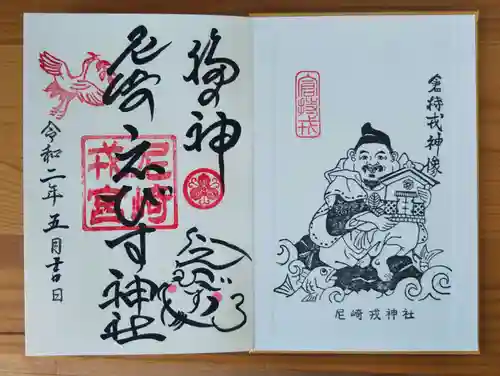 倉持戎神像
倉持戎
尼崎戎神社
福の神
尼崎えびす神社
尼崎
戎宮
令和二年五月吉日